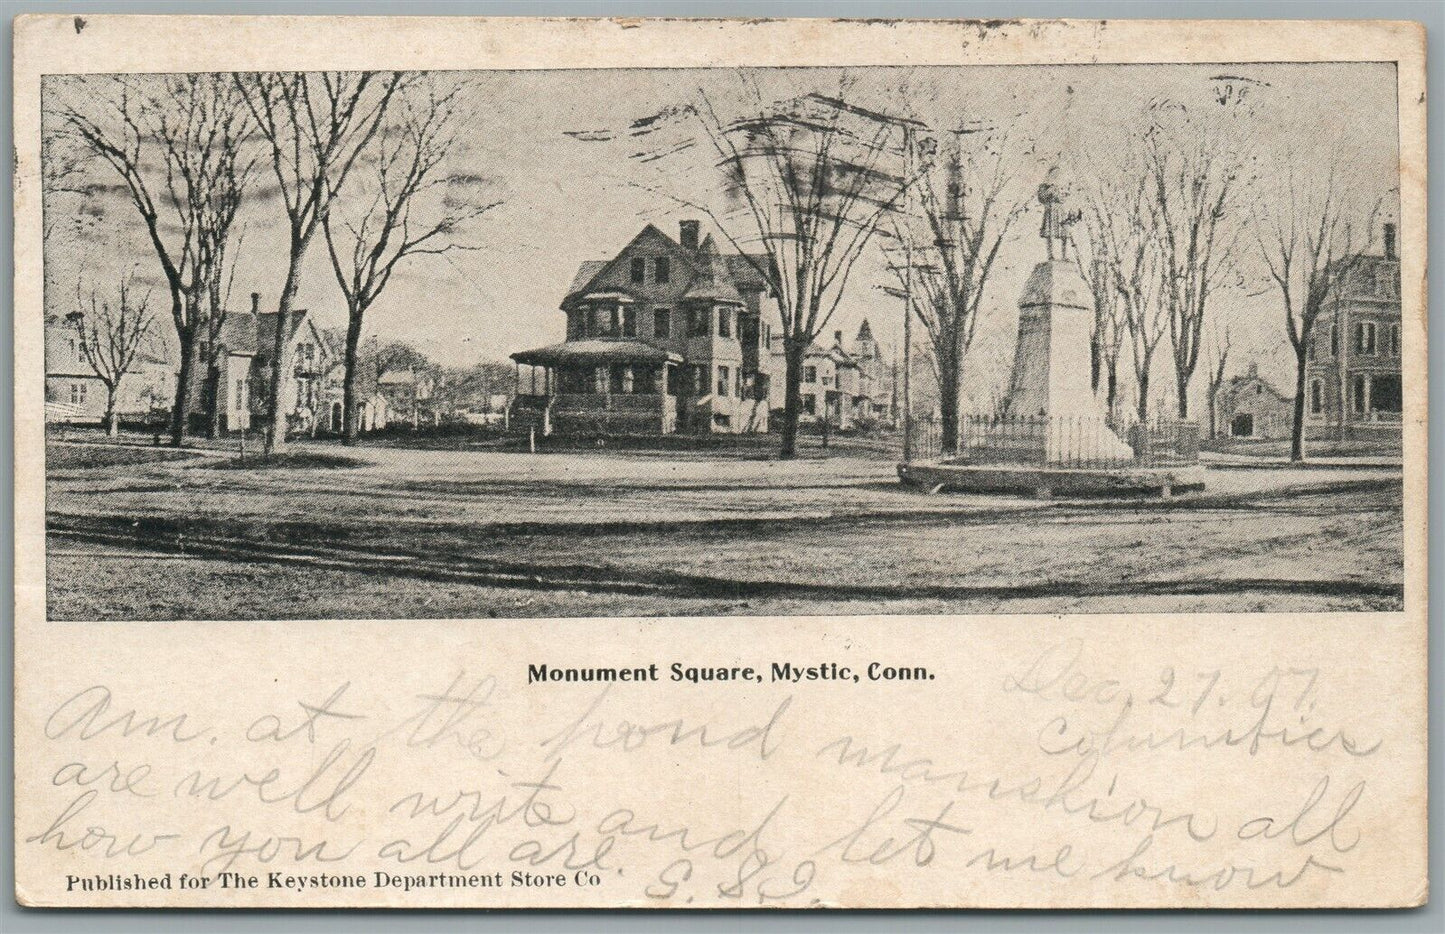 Monument Square, Mystic, Conn.
Dec. 27. 07.
Am. at the pond manshion all
are well write and let me know
how you all are.
Published for The Keystone Department Store Co